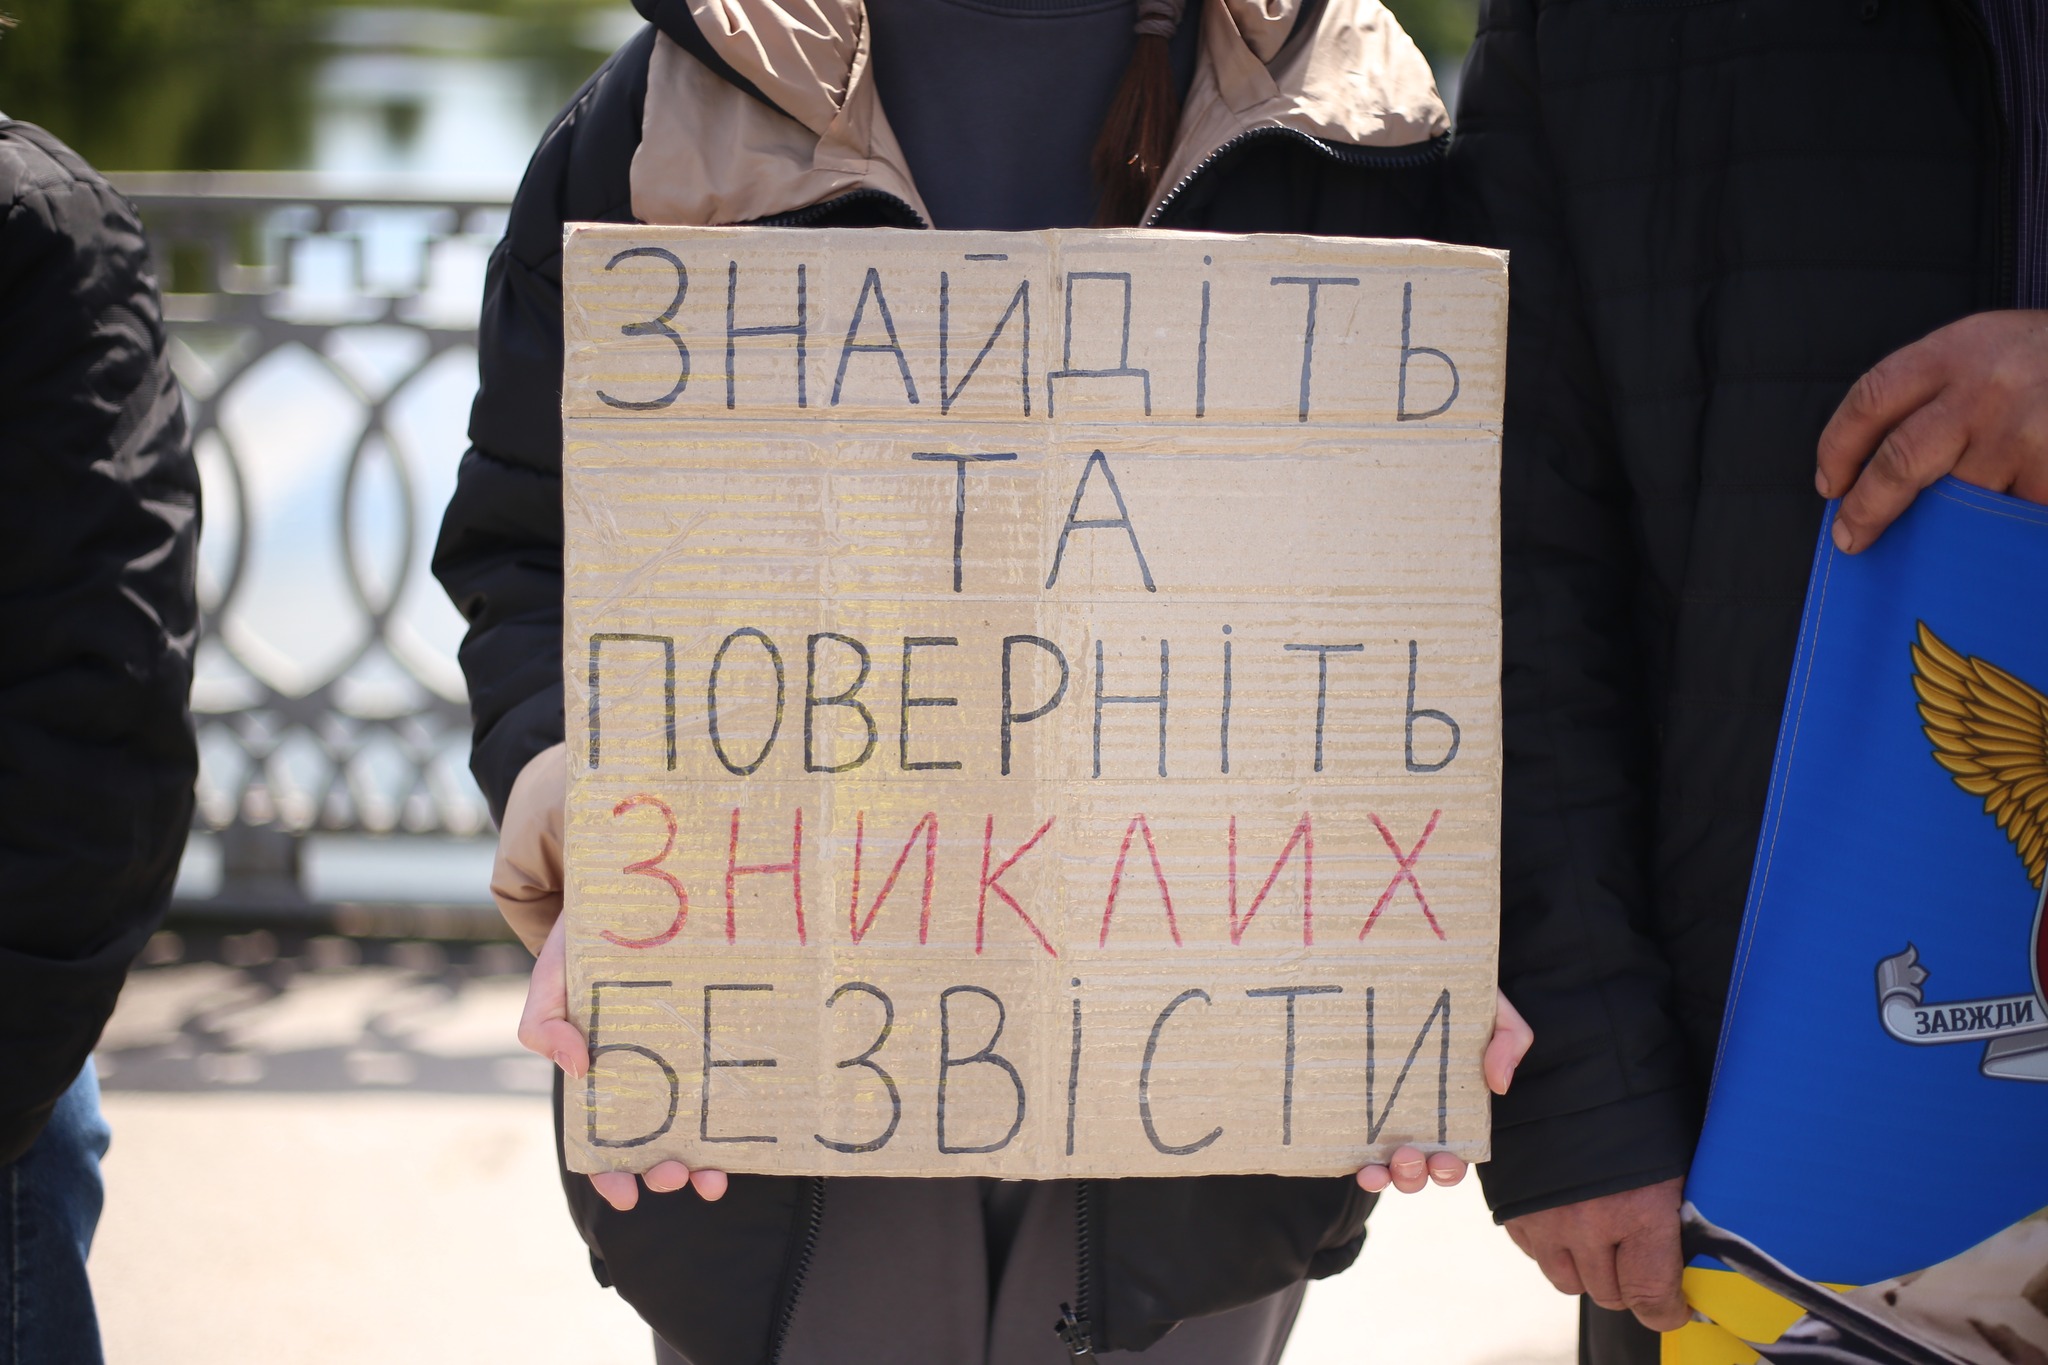 ЗНАЙДІТЬ
ТА
ПОВЕРНІТЬ
ЗНИКЛИХ
БЕЗВІСТИ
ЗАВЖДИ